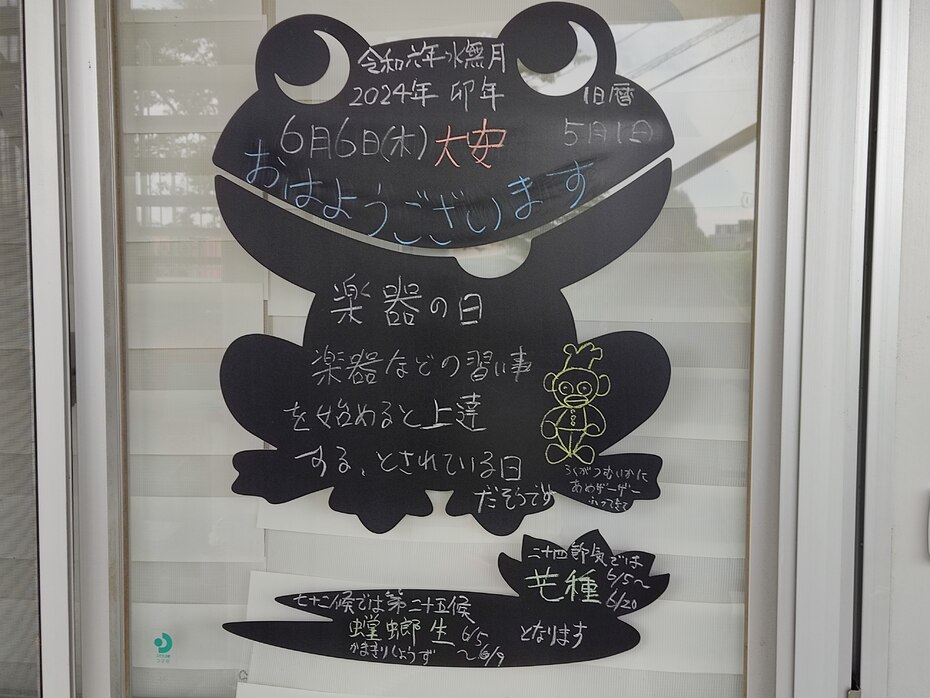 令和六年水無月
2024年 卯年
旧暦
6月6日(木) 大安
5月1日
おはようございます
楽器の日
楽器などの習い事
を始めると上達
する、とされている日
だそうです
ろくがつむいかに
あめざーざー
ふってきて
二十四節気では
芒種 6/5〜
6/20
七十二候では第二十五候
螳螂生 6/5
かまきりしょうず 〜6/9
となります